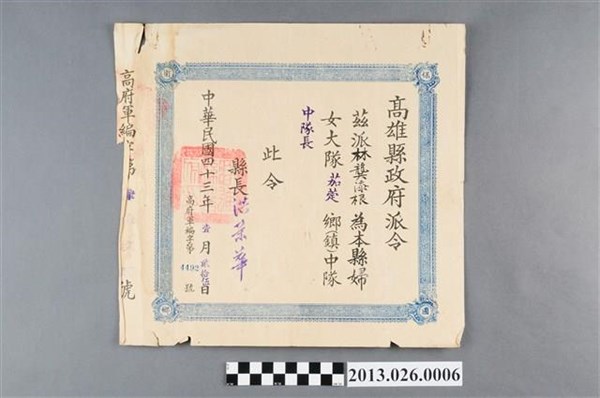 高雄縣政府派令
茲派林龔漆根為本縣婦
女大隊茄萣鄉(鎮)中隊
中隊長
此令
縣長洪榮華
中華民國四十三年壹月 日
高府軍編字第4492號
高府軍編字第 號
2013.026.0006